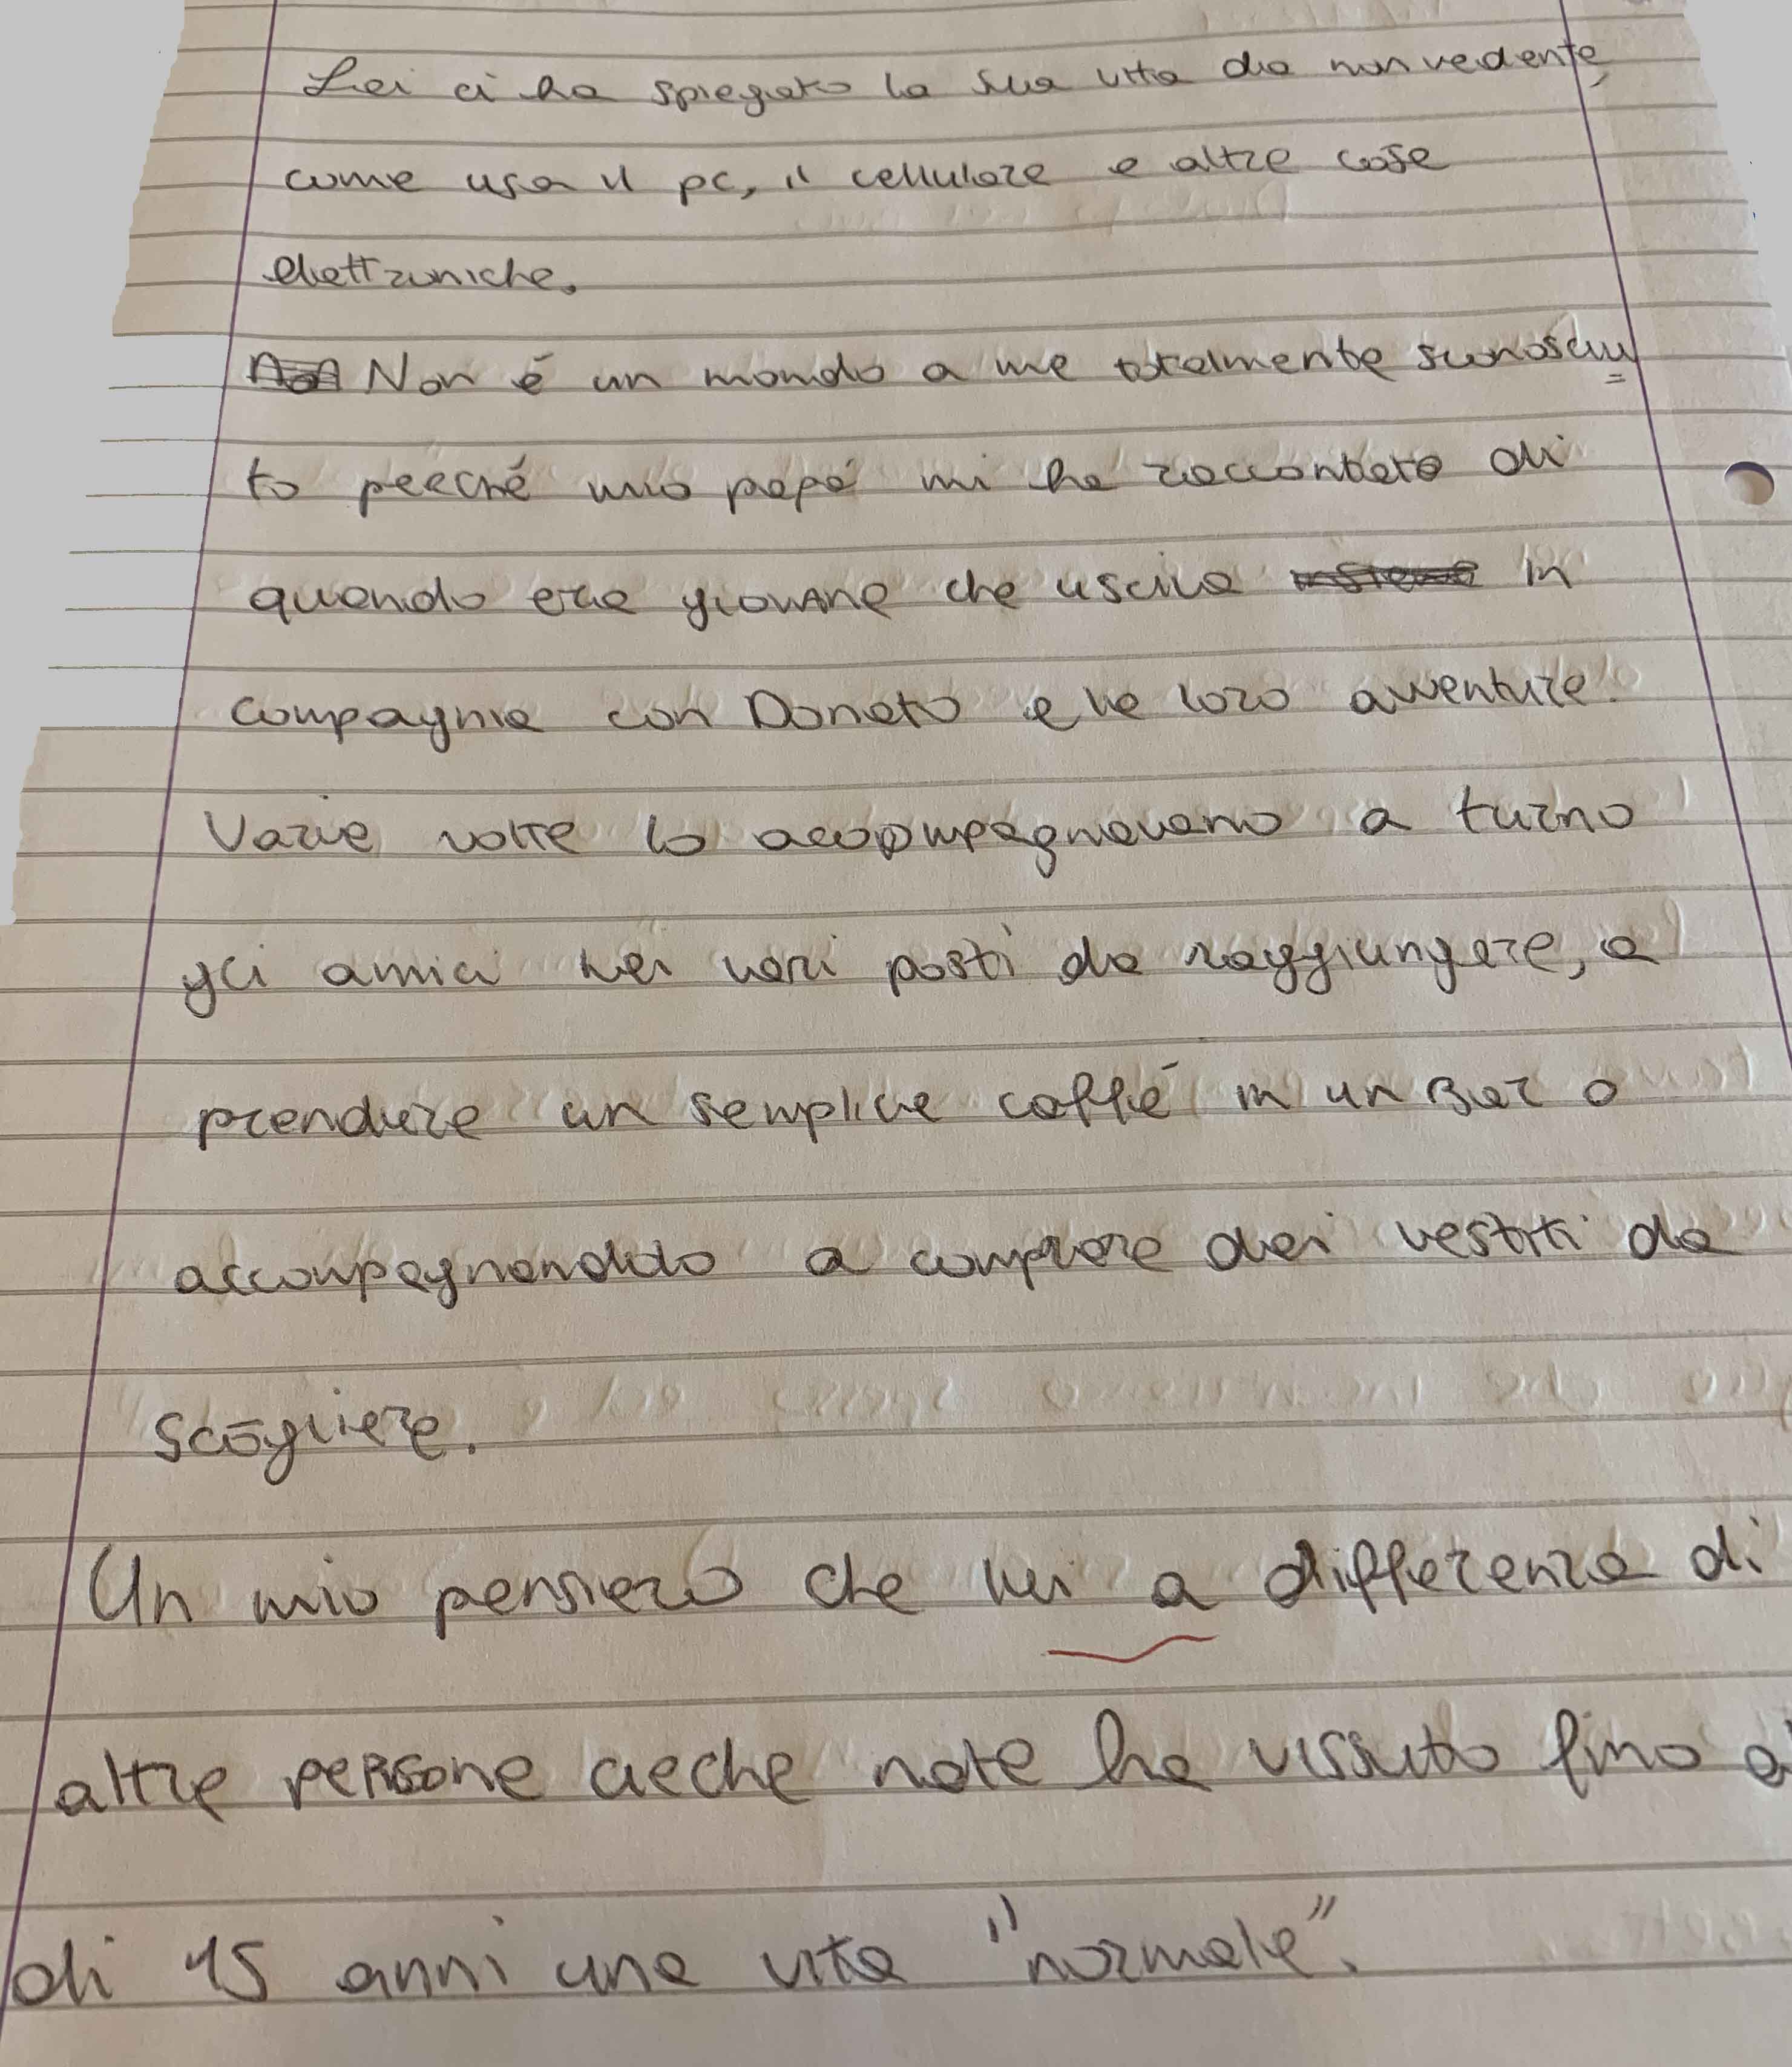 Lei ci ha spiegato la sua vita da non vedente,
come usa il pc, il cellulare e altre cose
elettroniche.
Non é un mondo a me totalmente sconosciu=
to perché mio papá mi ha raccontato di
quando era giovane che usciva in
compagnia con Donato e le loro avventure.
Varie volte lo accompagnavano a turno
gli amici nei vari posti da raggiungere, a
prendere un semplice caffé in un Bar o
accompagnandolo a comprare dei vestiti da
scegliere.
Un mio pensiero che lui a differenza di
altre persone cieche nate ha vissuto fino a
di 15 anni una vita "normale".